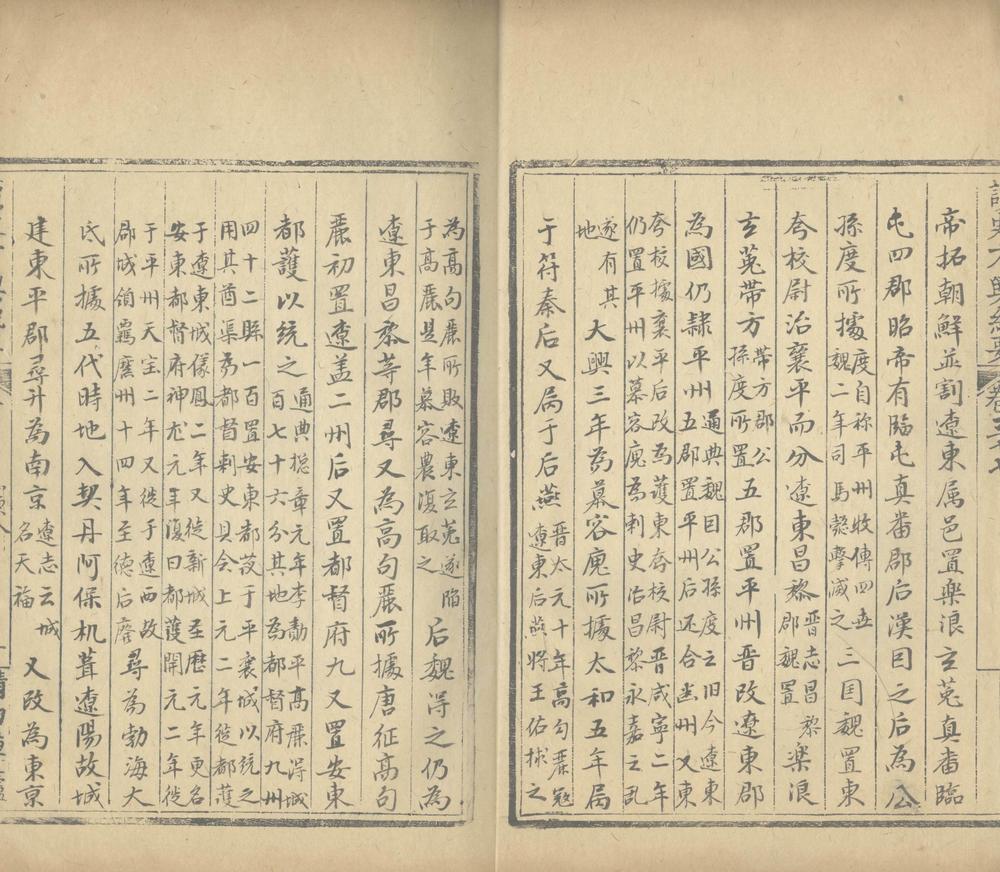 帝拓朝鮮並割遼東属邑置樂浪玄菟真畨臨
屯四郡昭帝有臨屯真畨郡后漢囙之后為公
孫度所據度自称平州牧傳四世
魏二年司馬懿擊滅之三囯魏置東
夸校尉治襄平而分遼東昌黎晋志昌黎
郡魏置樂浪
玄菟帶方帶方郡公
孫度所置五郡置平州晋改遼東郡
為國仍隷平州通典魏囙公孫度之旧今遼東
五郡置平州后还合幽州又東
夸校據襄平后改為護東夸校尉晋咸寧二年
仍置平州以慕容廆為刺史治昌黎永嘉之乱
遂有其
地大興三年為慕容廆所據太和五年属
于符秦后又属于后燕晋太元十年高勾麗寇
遼東后燕將王佑捄之
為高句麗所敗遼東玄菟遂陷
于高麗是年慕容農復取之后魏得之仍為
遼東昌黎等郡尋又為高句麗所據唐征高句
麗初置遼盖二州后又置都督府九又置安東
都護以統之通典総章元年李勣平高麗得城
百七十六分其地為都督府九州
四十二縣一百置安東都護于平襄城以統之
用其酋渠為都督刺史具令上元二年徙都護
于遼東城儀鳳二年又徙新城圣歷元年更名
安東都督府神龙元年復曰都護開元二年徙
于平州天宝二年又徙于遼西故
郡城領羈縻州十四年至德后廢尋為勃海大
氏所據五代時地入契丹阿保机葺遼陽故城
建東平郡尋升為南京遼志云城
名天福又改為東京